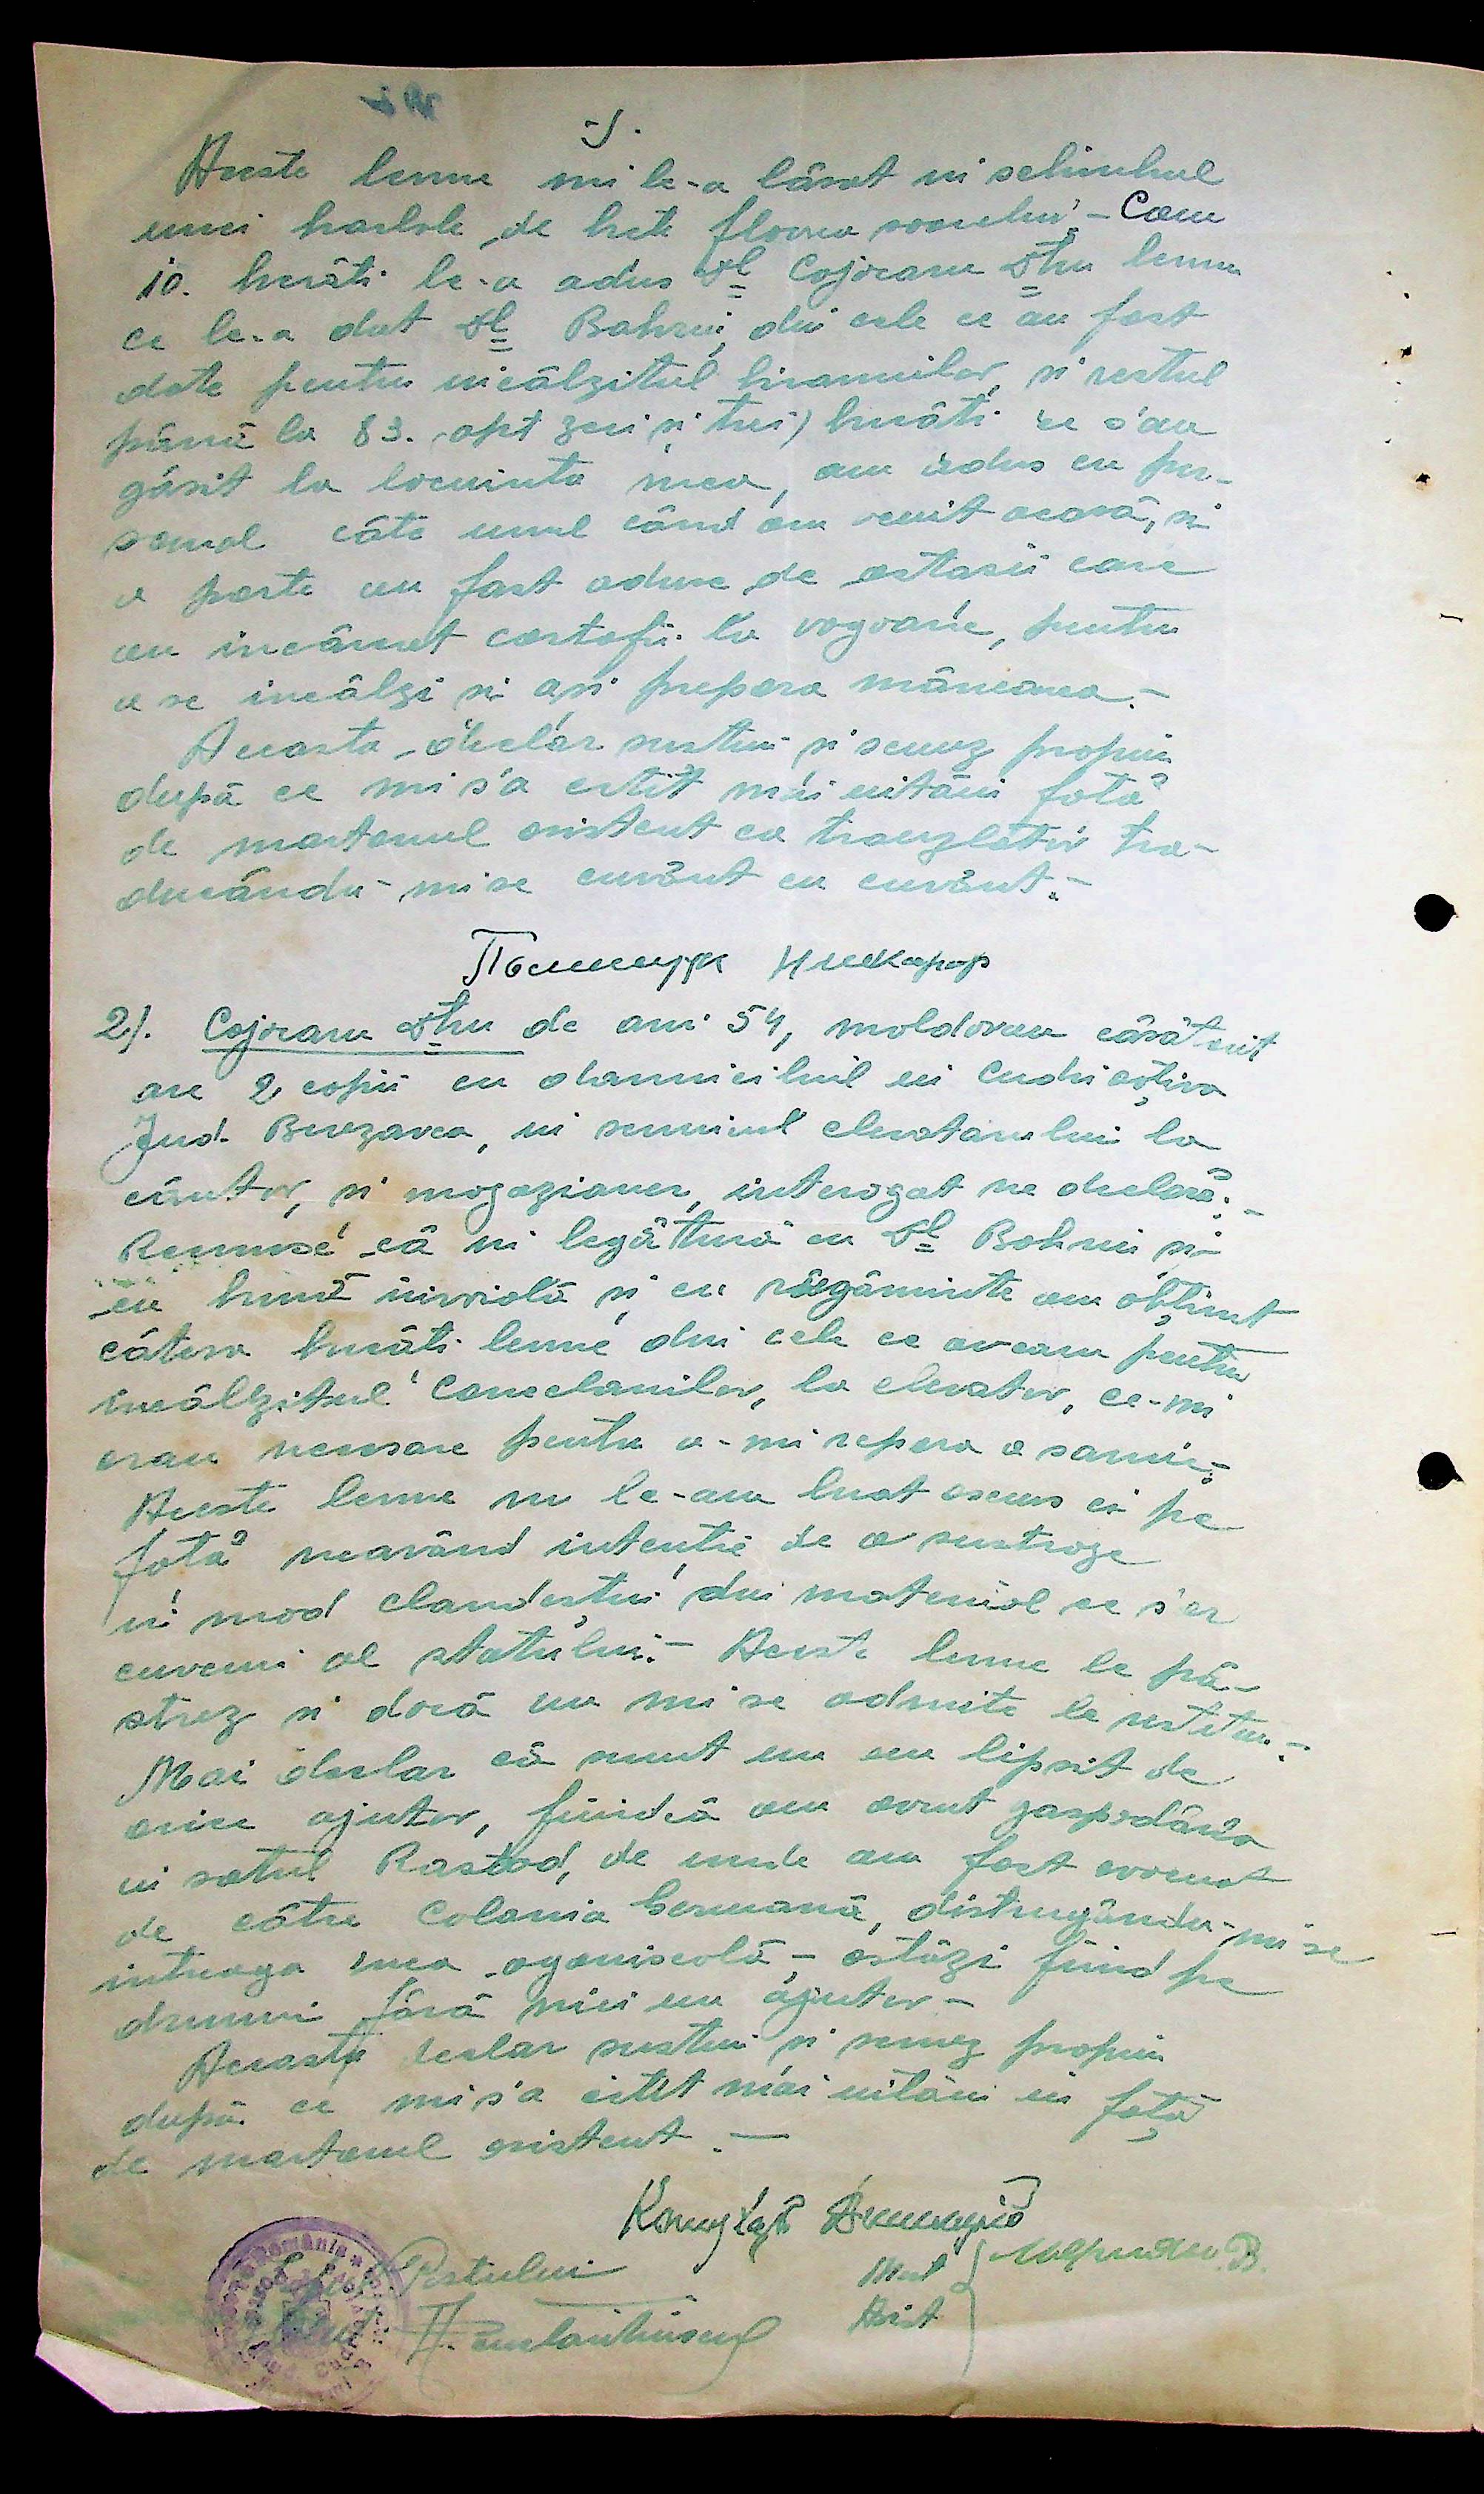 Aceste lemne mi le-a lăsat in schimbul
unei boclole de bete floarea soarelui - Cam
10. bucăți le-a adus Dl Cojocaru Dtru lemne
ce le-a dat Dl Bahrii din cele ce au fost
date pentru incălzitul birourilor, si restul
până la 83. opt zeci și trei) bucăti ce s'au
găsit la locuinta mea, am adus cu per-
sonal câte unul când am venit acasă, si
o parte au fost aduse de ostasii care
au incărcat cartofi la vogoane, pentru
a se incălzi si ași prepara mâncarea.-
Aceasta declar sustin și semnez propriu
după ce mi s'a citit mai intăi fată
de martorul asistent ca translator tra-
ducându-mi se cuvânt cu cuvânt.-
2). Cojocaru Dtru de ani 54, moldovan căsătorit
are 2 copii cu domiciliul in
Jud. Berezovca, in serviciul elevatorului la
cântar, si magazioner, interogat ne declară:-
Recunosc că in legătură cu Dl Bahrii si
cu bună invoială și cu rugăminte am obținut
câteva bucăti lemne din cele ce aveam pentru
incălzitul cancelariilor, la elevator, ce-mi
erau necesare pentru a-mi repara o sanie.-
Aceste lemne nu le-am luat ascuns ci pe
fată neavând intentie de a sustrage
in mod clandestin din material ce s'ar
cuveni al statului.- Aceste lemne le pă-
strez si dacă nu mi se admite le restitui.-
Mai declar că sunt un om lipsit de
orice ajutor, fiindcă am avut gospodăria
in satul Rastad, de unde am fost evacuat
de către Colonia Germană, distrugându-mi se
intreaga mea agoniseală - astăzi fiind pe
drumuri fără nici un ajutor -
Aceasta declar sustin si semnez propriu
după ce mi s'a citit mai intăi in față
de martorul asistent.-
Postului
Mart
Asist